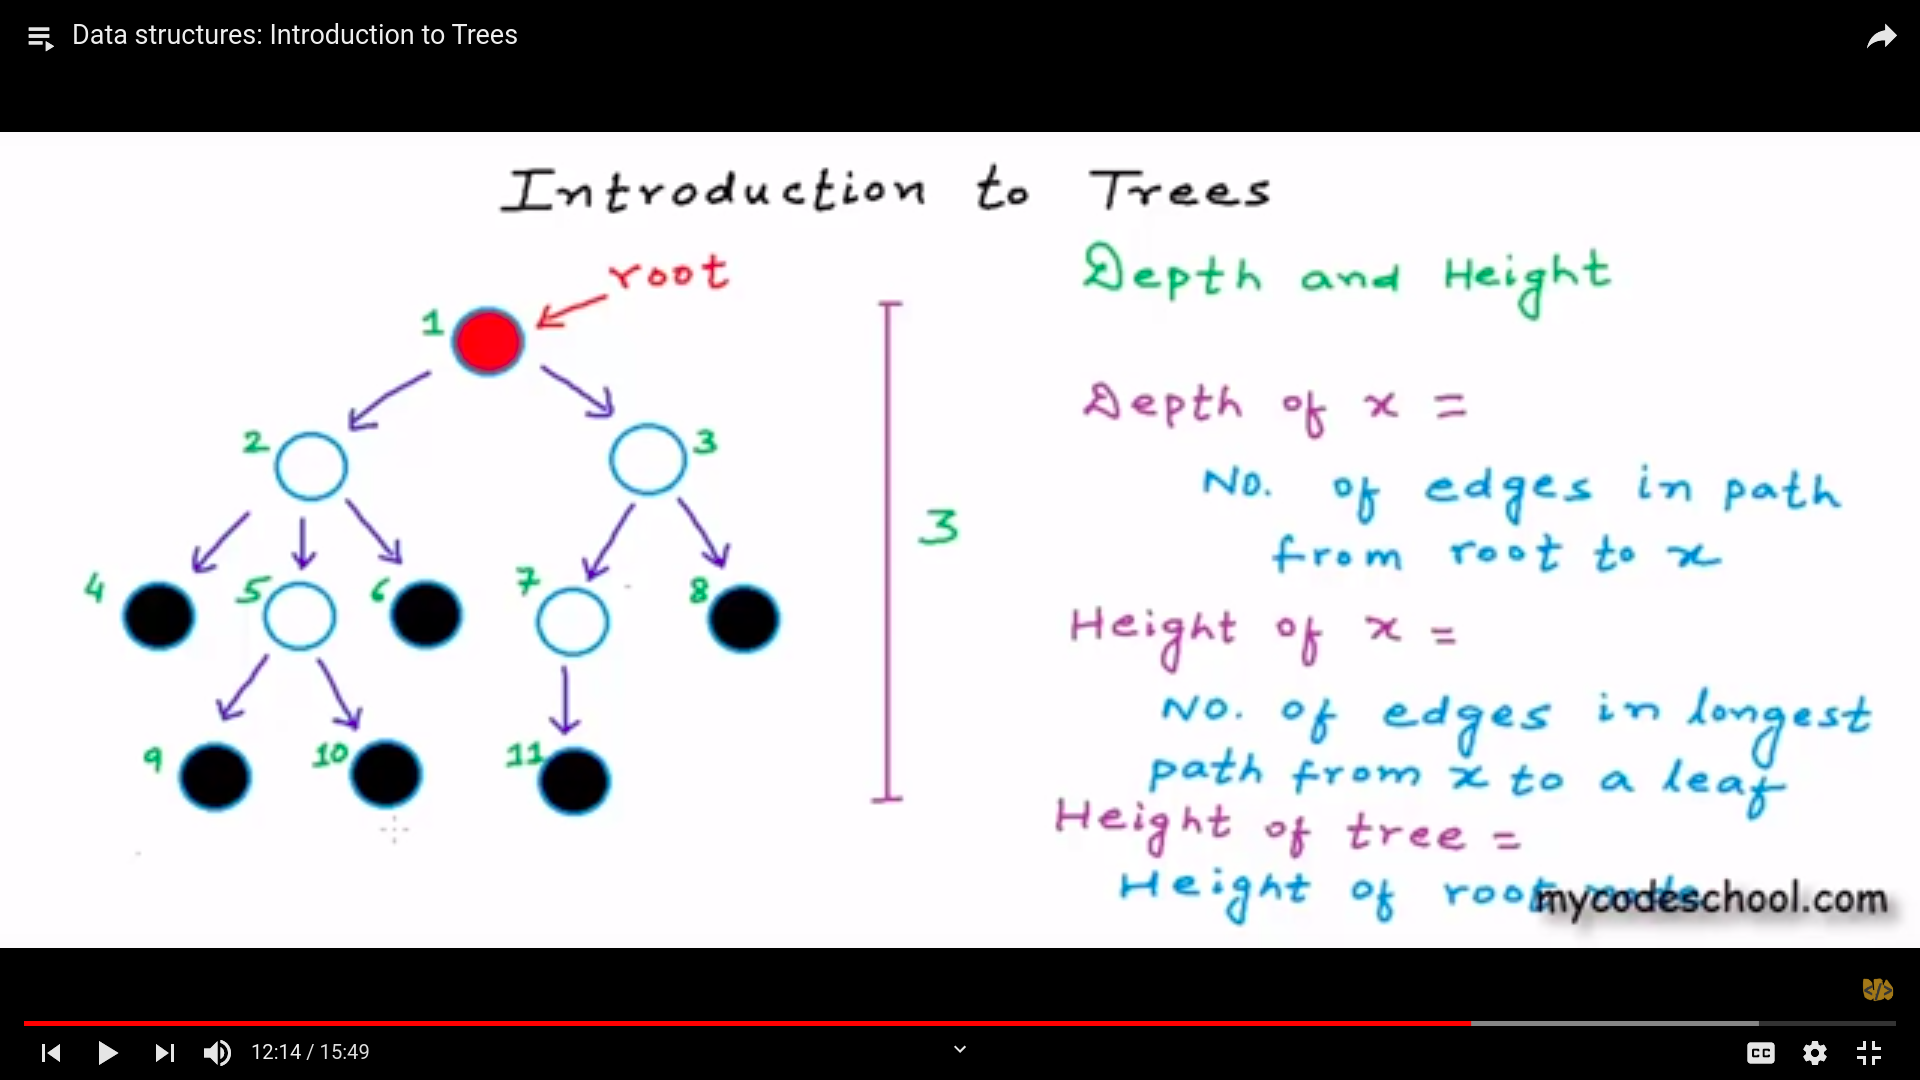 Data structures: Introduction to Trees
Introduction to Trees
root
1
2
3
4
5
6
7
8
9
10
11
3
Depth and Height
Depth of x =
No. of edges in path
from root to x
Height of x =
No. of edges in longest
path from x to a leaf
Height of tree =
Height of root node
mycodeschool.com
12:14 / 15:49
CC